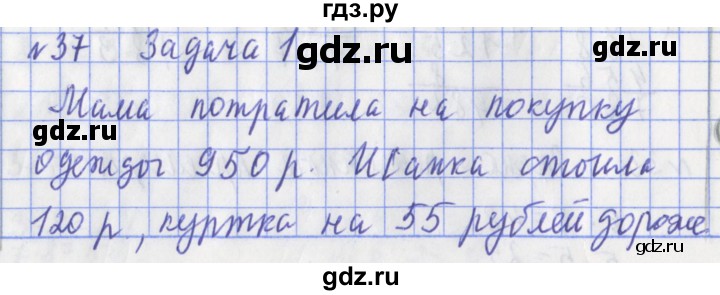 гдз.ру
№37 Задача 1
gdz.ru
Мама потратила на покупку
gdz.ru
одежды 950 р. Шапка стоила
120 р, куртка на 55 рублей дороже
gdz.ru
gdz.ru
gdz.ru